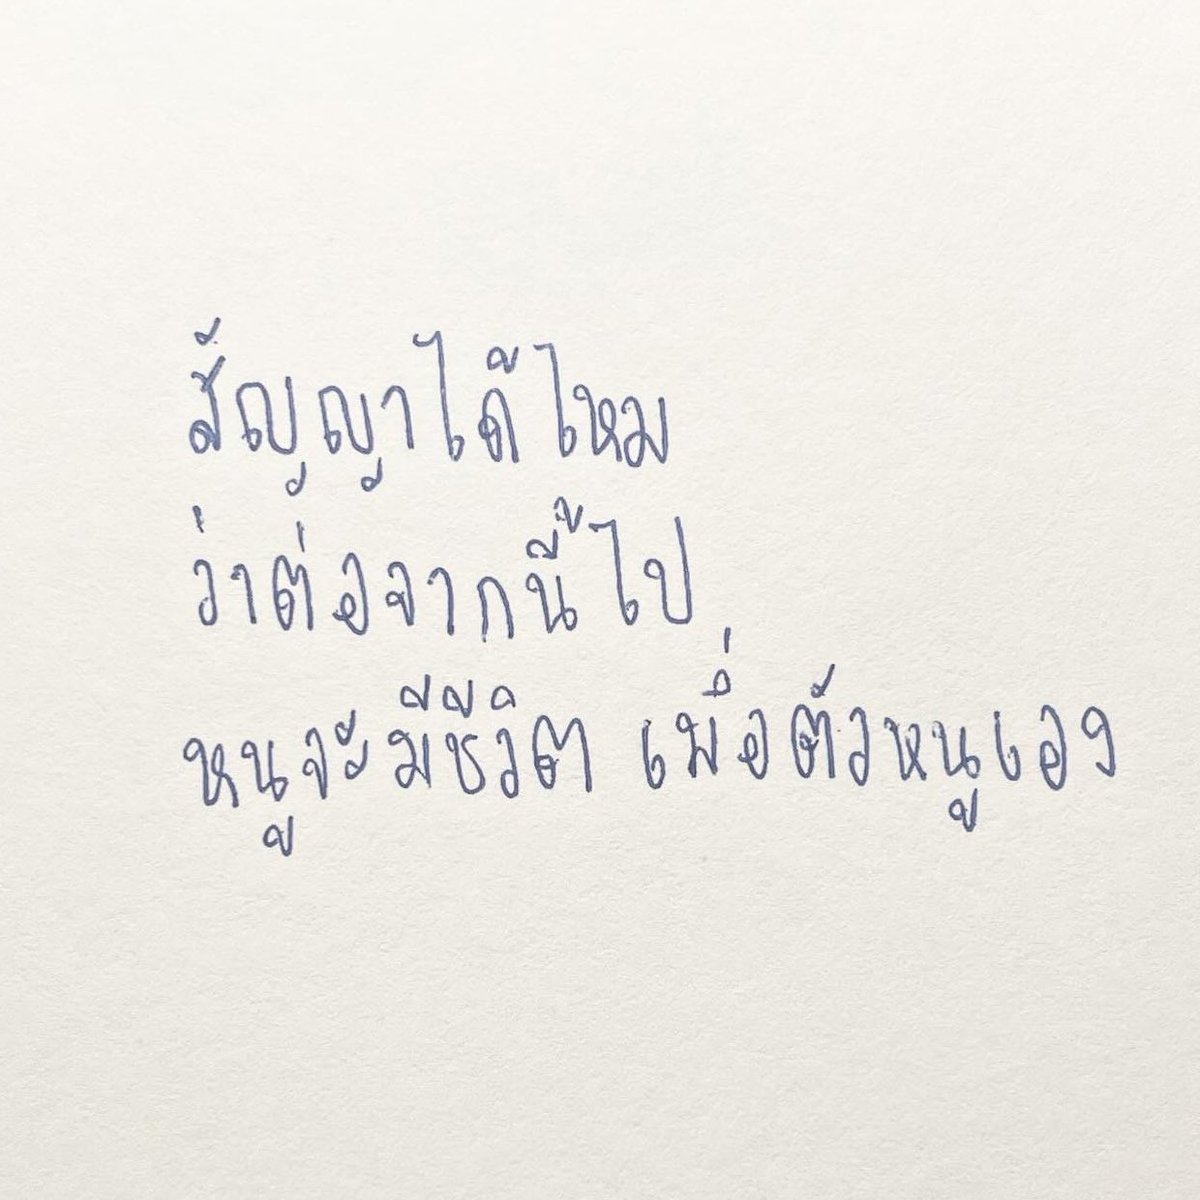 สัญญาได้ไหม
ว่าต่อจากนี้ไป
หนูจะมีชีวิต เพื่อตัวหนูเอง